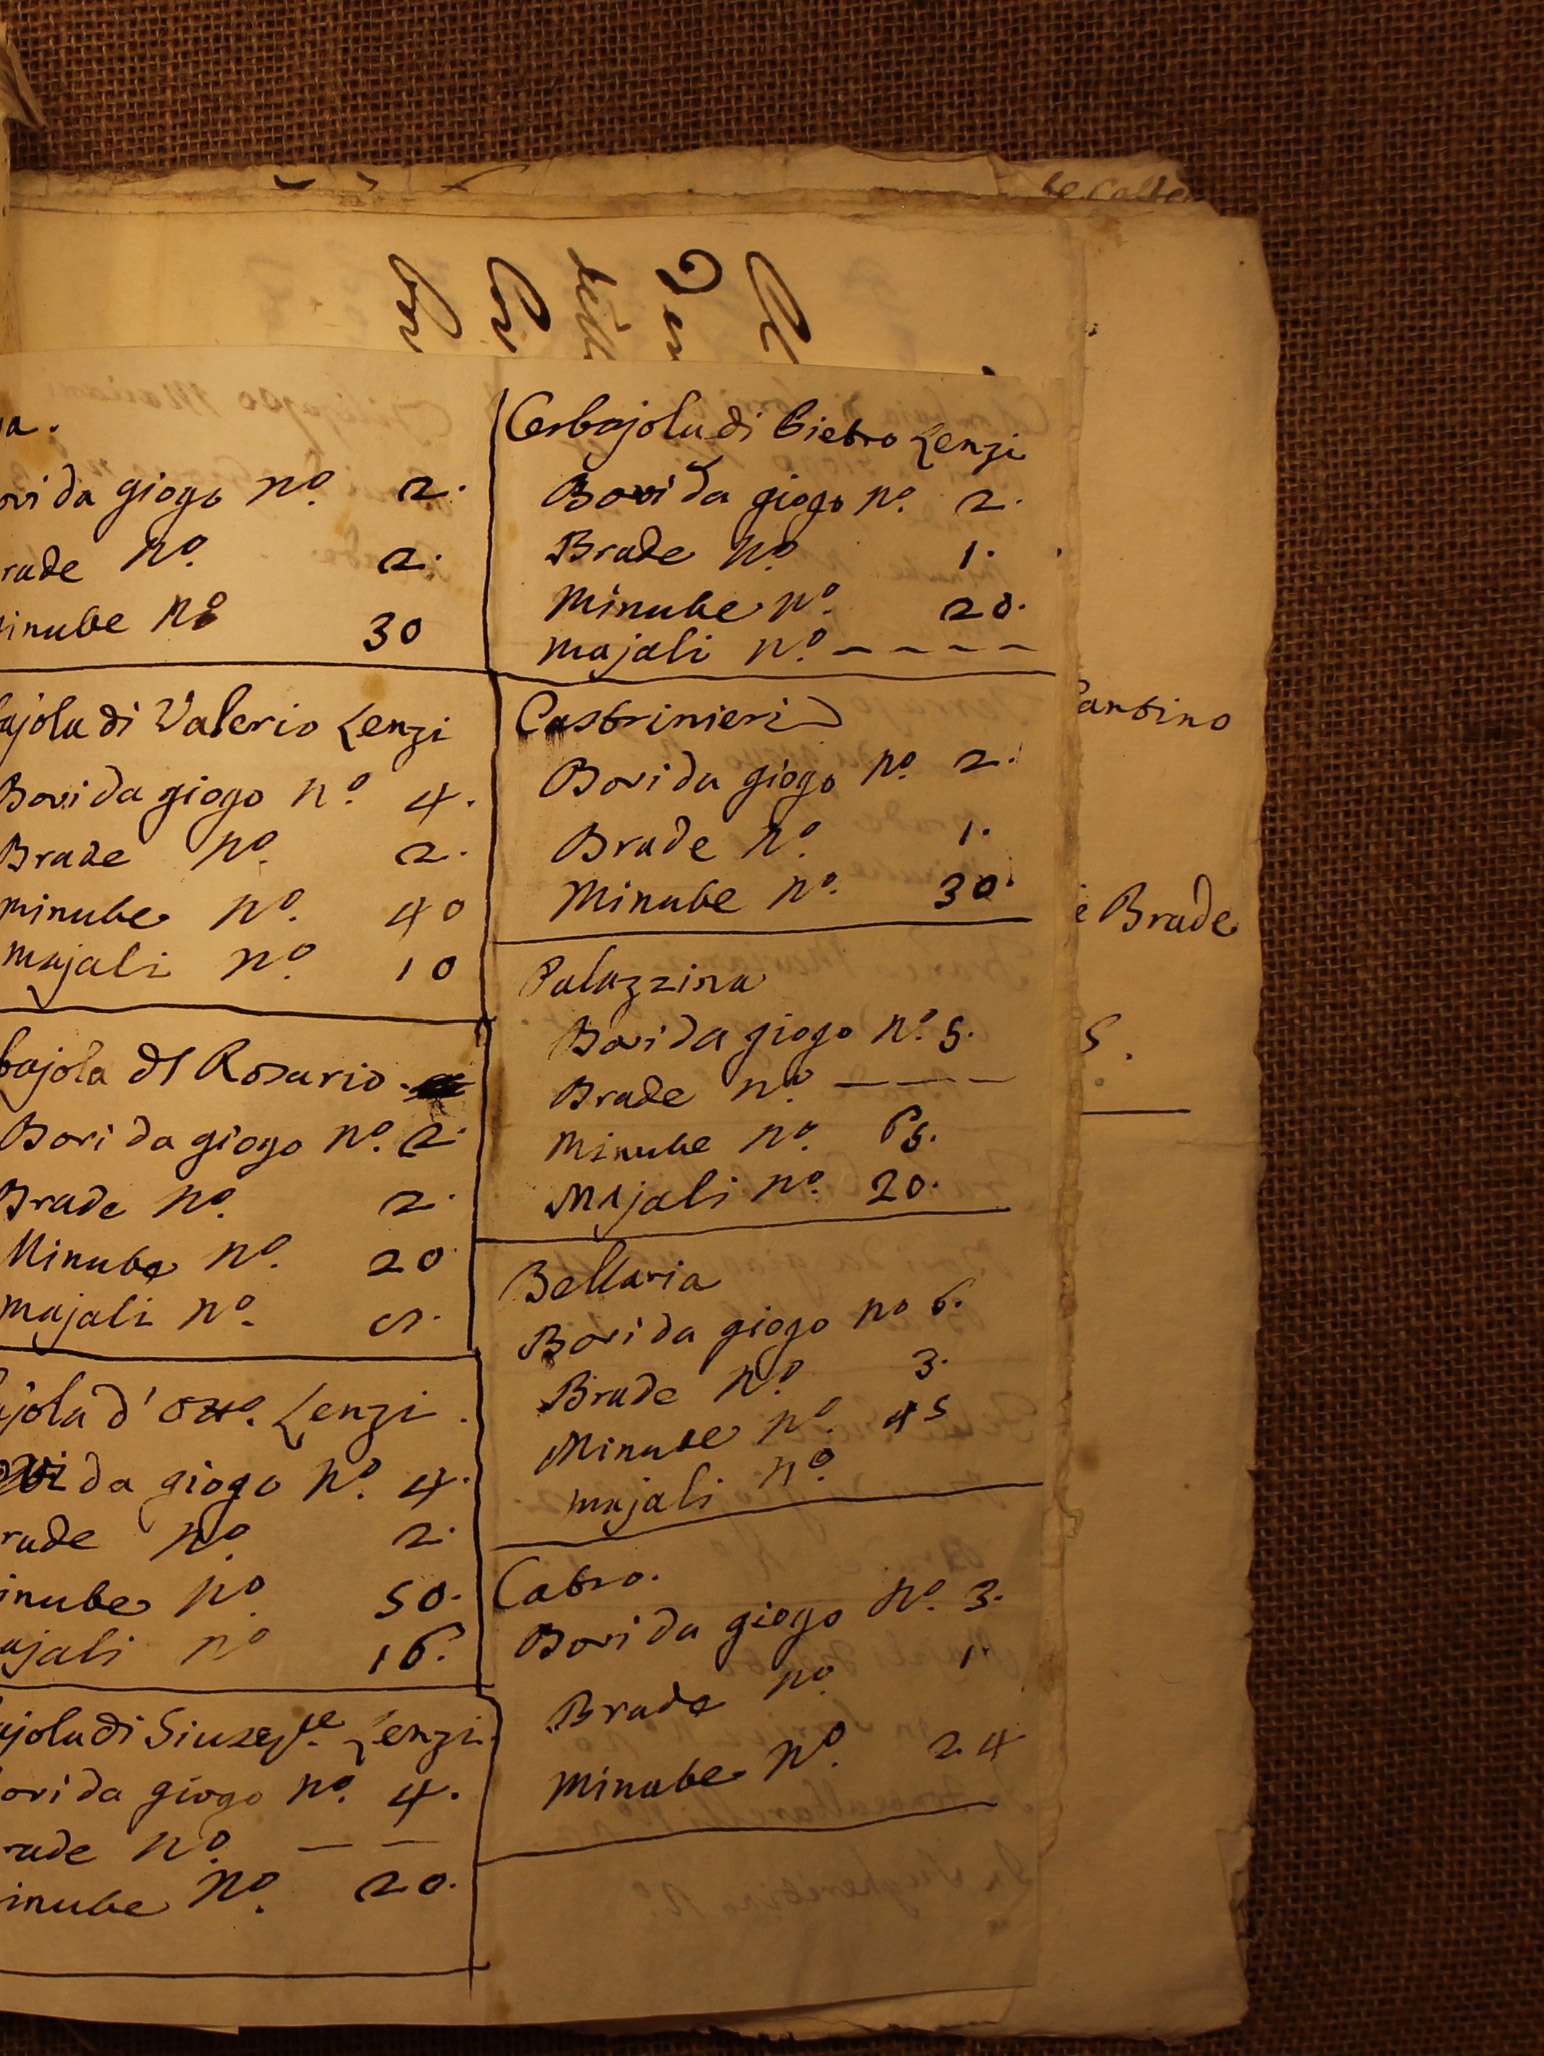 a.
ovi da giogo nº. 2.
rade nº. 2.
inube nº 30
ajola di Valerio Lenzi
Bovi da giogo nº. 4.
Brade nº. 2.
minube nº. 40
majali nº. 10
bajola di Rosario.
Bovi da giogo nº. 2.
Brade nº. 2.
Minube nº. 20
majali nº. 5.
jola d' Ottº. Lenzi.
ovi da giogo nº. 4.
rade nº. 2.
inube nº. 50.
ajali nº 16.
ajola di Giusepe. Lenzi.
ovi da giogo nº. 4.
rade nº. — —
inube nº. 20.
Cerbajola di Pietro Lenzi
Bovi da giogo nº. 2.
Brade nº. 1.
Minube nº. 20.
majali nº. — — — —
Castrinieri
Bovi da giogo nº. 2.
Brade nº. 1.
Minube nº. 30.
Palazzina
Bovi da giogo nº. 5.
Brade nº. — — — —
Minube nº. 65.
Majali nº. 20.
Bellaria
Bovi da giogo nº 6.
Brade nº. 3.
Minube nº. 45
majali nº.
Catro.
Bovi da giogo nº. 3.
Brade nº. 1.
Minube nº. 24
antino
e Brade
5.